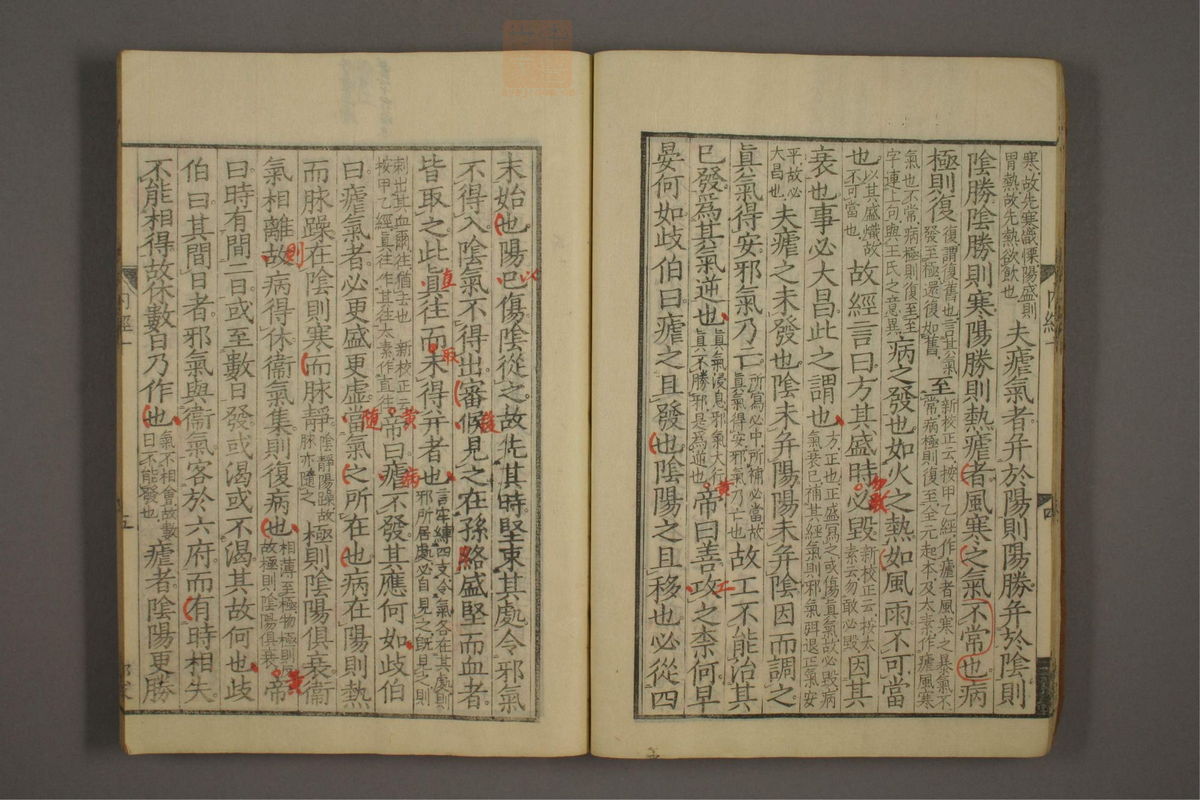 寒故先寒戰慄陽盛則胃熱故先熱欲飲也夫瘧氣者并於陽則陽勝并於陰則
陰勝陰勝則寒陽勝則熱瘧者風寒之氣不常也病
極則復復謂復舊也言其氣發至極還復如舊至新校正云按甲乙經作瘧者風寒之暴氣不常病極則復至全元起本及太素作瘧風寒
氣也不常病極則復至至字連上句與王氏之意異病之發也如火之熱如風雨不可當
也以其盛熾故也不可當也故經言曰方其盛時必毀新校正云按太素云勿敢必毀因其
衰也事必大昌此之謂也方正也正盛寫之或傷真氣故必毀病氣衰已補其經氣則邪氣弭退正氣安
平故必大昌也夫瘧之未發也陰未并陽陽未并陰因而調之
真氣得安邪氣乃亡所寫必中所補必當故真氣得安邪氣乃亡也故工不能治其
已發爲其氣逆也真氣浸息邪氣大行真不勝邪是爲逆也帝曰善攻之柰何早
晏何如歧伯曰瘧之且發也陰陽之且移也必從四
末始也陽已傷陰從之故先其時堅束其處令邪氣
不得入陰氣不得出審候見之在孫絡盛堅而血者
皆取之此真往而未得并者也言牢縛四支令氣各在其處則邪所居處必自見之旣見之則
刺出其血爾往猶去也新校正云按甲乙經真往作其往太素作直往帝曰瘧不發其應何如歧伯
曰瘧氣者必更盛更虛當氣之所在也病在陽則熱
而脉躁在陰則寒而脉靜陰靜陽躁故脉亦隨之極則陰陽俱衰衞
氣相離故病得休衞氣集則復病也相薄至極物極則反故極則陰陽俱衰帝
曰時有間二日或至數日發或渴或不渴其故何也歧
伯曰其間日者邪氣與衞氣客於六府而有時相失
不能相得故休數日乃作也氣不相會故數日不能發也瘧者陰陽更勝
內經一
四
五
以
直
取
後
黃
隨
病
則
黃
勿敢
黃
工